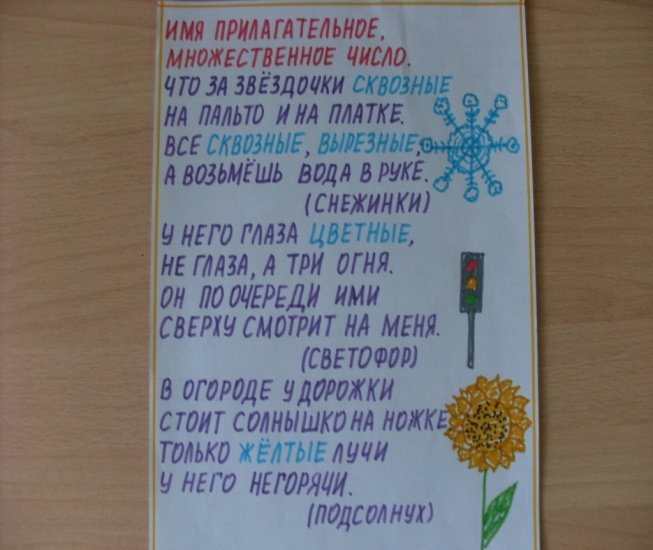 ИМЯ ПРИЛАГАТЕЛЬНОЕ,
МНОЖЕСТВЕННОЕ ЧИСЛО.
ЧТО ЗА ЗВЁЗДОЧКИ СКВОЗНЫЕ
НА ПАЛЬТО И НА ПЛАТКЕ.
ВСЕ СКВОЗНЫЕ, ВЫРЕЗНЫЕ,
А ВОЗЬМЁШЬ ВОДА В РУКЕ.
(СНЕЖИНКИ)
У НЕГО ГЛАЗА ЦВЕТНЫЕ,
НЕ ГЛАЗА, А ТРИ ОГНЯ.
ОН ПО ОЧЕРЕДИ ИМИ
СВЕРХУ СМОТРИТ НА МЕНЯ.
(СВЕТОФОР)
В ОГОРОДЕ У ДОРОЖКИ
СТОИТ СОЛНЫШКО НА НОЖКЕ
ТОЛЬКО ЖЁЛТЫЕ ЛУЧИ
У НЕГО НЕГОРЯЧИ.
(ПОДСОЛНУХ)